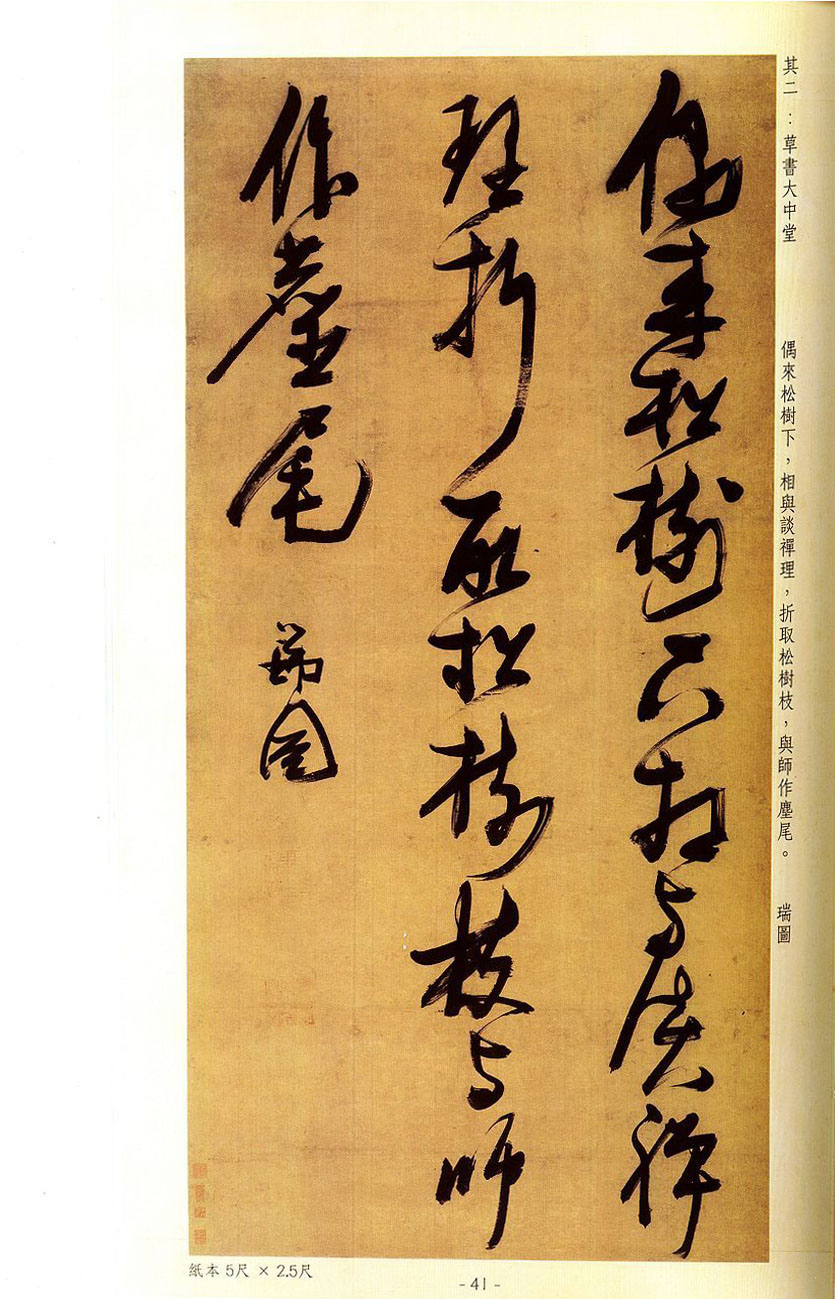 其二：草書大中堂　偶來松樹下，相與談禪理，折取松樹枝，與師作塵尾。　瑞圖
偶來松樹下相与談禪
理折取松樹枝与師
作麈尾　瑞圖
紙本 5尺 × 2.5尺
- 41 -